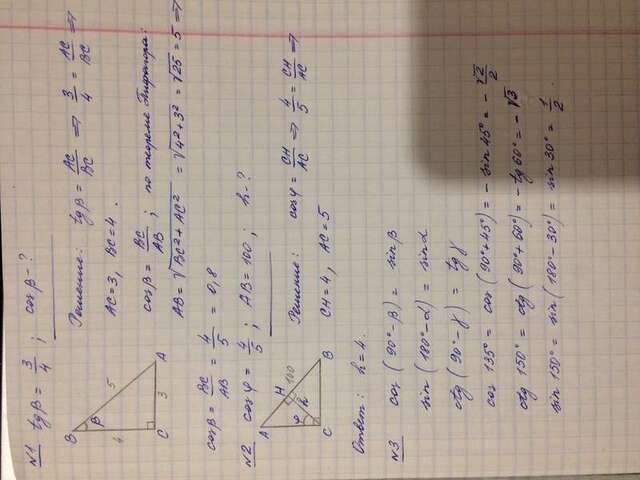 №1 tgβ = 3/4 ; cosβ - ?
Решение: tgβ = AC/BC ⇒ 3/4 = AC/BC ⇒
AC = 3, BC = 4.
cosβ = BC/AB ; по теореме Пифагора:
AB = √(BC² + AC²) = √(4² + 3²) = √25 = 5 ⇒
B
β
4
5
C
3
A
cosβ = BC/AB = 4/5 = 0,8
№2 cosφ = 4/5 ; AB = 100 ; h - ?
A
H
100
φ
h
C
B
Решение: cosφ = CH/AC ⇒ 4/5 = CH/AC ⇒
CH = 4, AC = 5
Ответ: h = 4.
№3 cos (90° - β) = sinβ
sin (180° - α) = sinα
ctg (90° - γ) = tgγ
cos 135° = cos (90° + 45°) = - sin 45° = - √2/2
ctg 150° = ctg (90° + 60°) = - tg 60° = - √3
sin 150° = sin (180° - 30°) = sin 30° = 1/2.